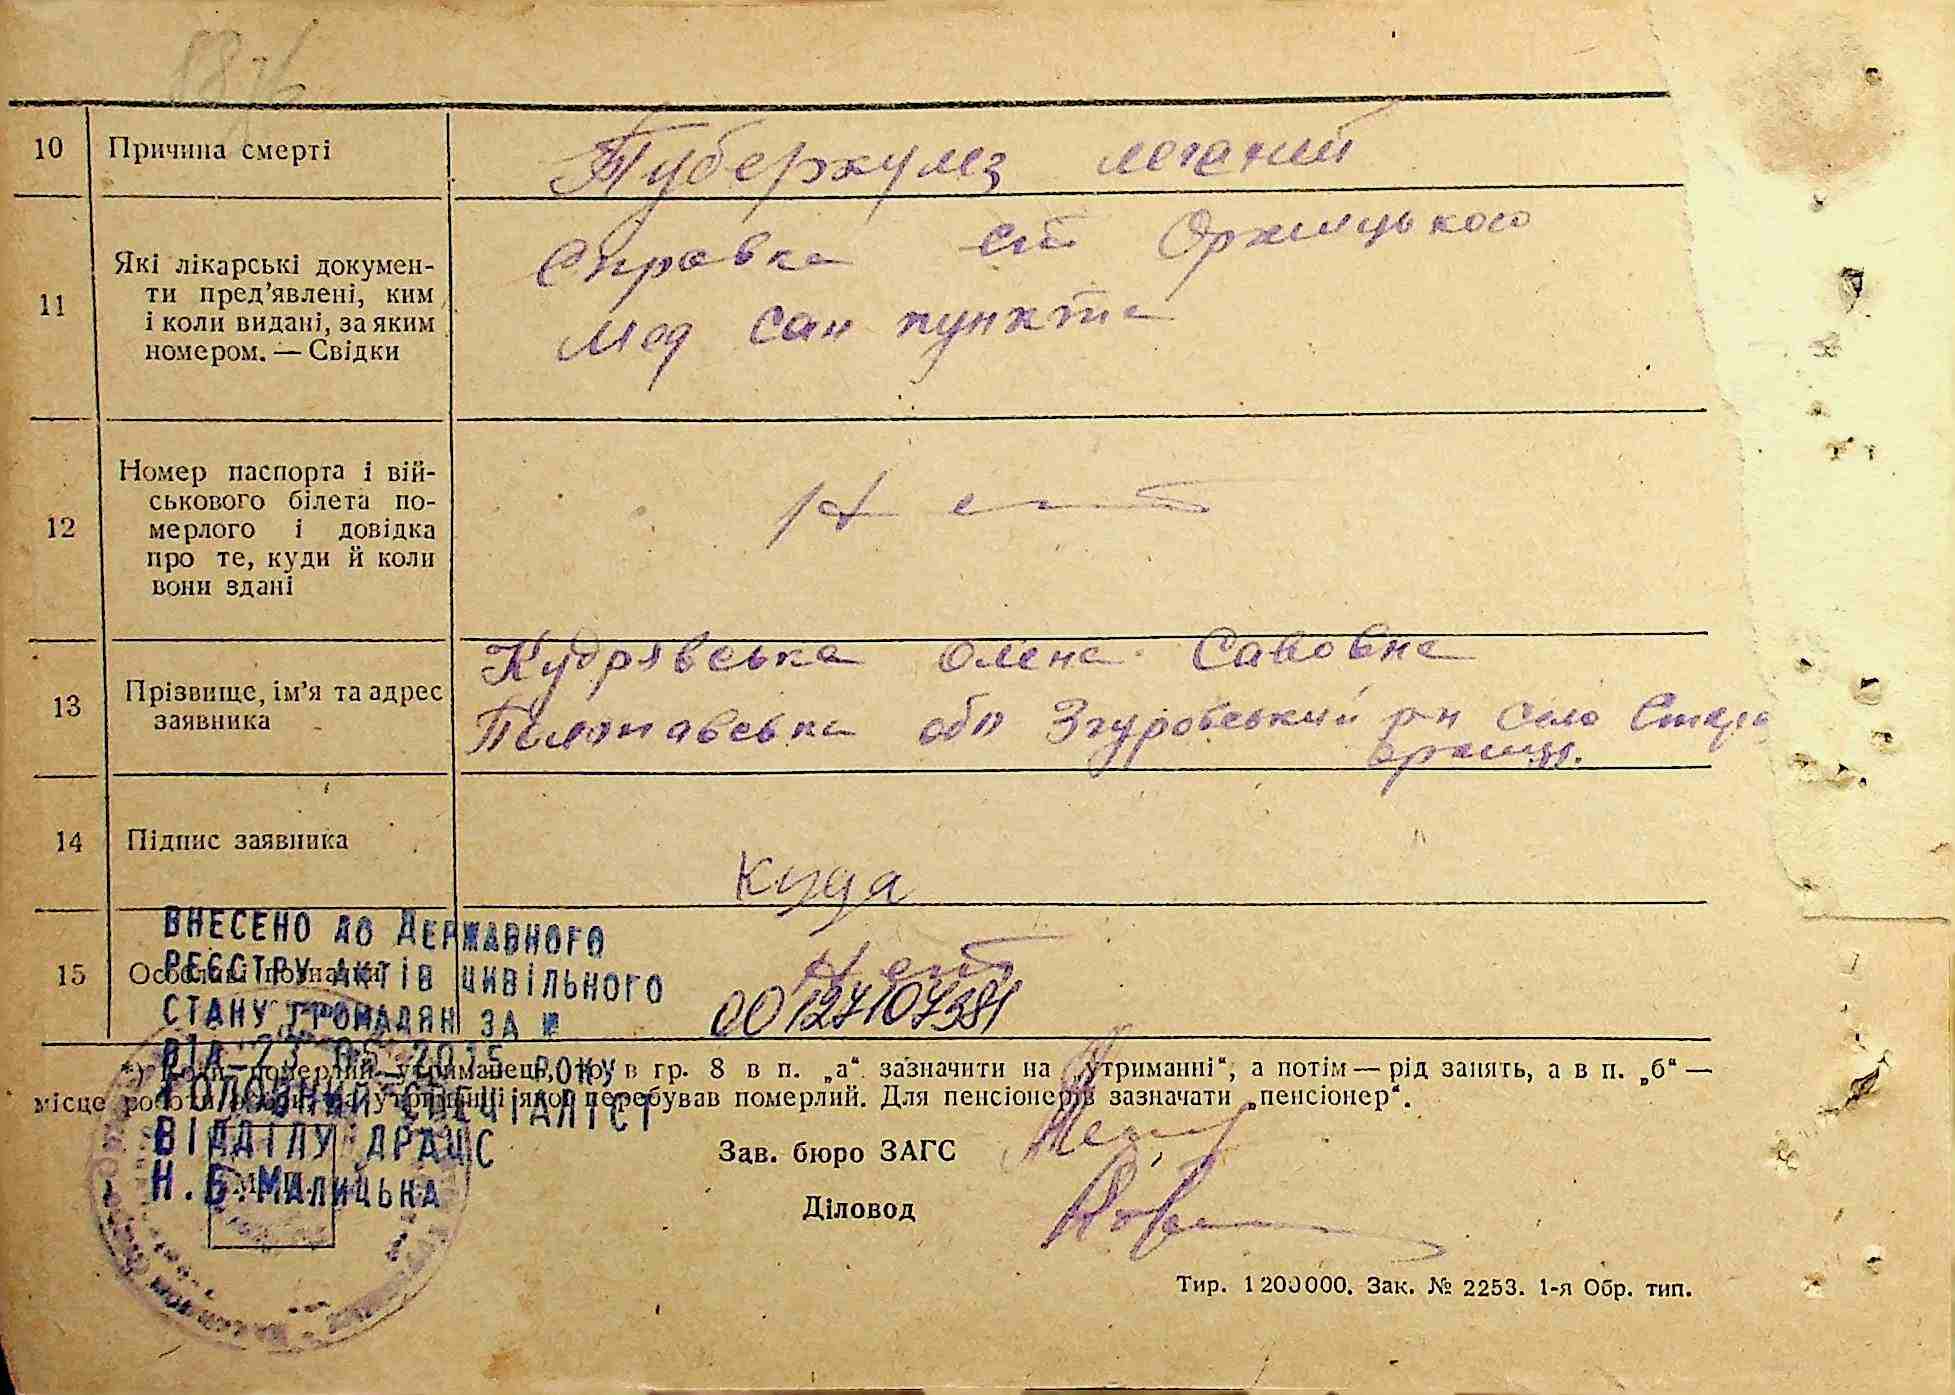 10 Причина смерті Туберкулез легений
11 Які лікарські докумен-
ти пред'явлені, ким
і коли видані, за яким
номером. — Свідки
Справка от Оржицького
мед сан пункта
12 Номер паспорта і вій-
ськового білета по-
мерлого і довідка
про те, куди й коли
вони здані
Нет
13 Прізвище, ім'я та адрес
заявника
Кудрявська Олена Савовна
Полтавська обл Згуровський р-н село Стара
оржиця.
14 Підпис заявника Куда
15 Особливі познаки Нет
00127107381
ВНЕСЕНО ДО ДЕРЖАВНОГО
РЕЄСТРУ АКТІВ ЦИВІЛЬНОГО
СТАНУ ГРОМАДЯН ЗА №
ВІД 23 05 2015 РОКУ
ГОЛОВНИЙ СПЕЦІАЛІСТ
ВІДДІЛУ ДРАЦС
Н.Б.МАЛИЦЬКА
померлий утриманець, то в гр. 8 в п. „а“ зазначити на „утриманні“, а потім — рід занять, а в п. „б“ —
місце роботи перебував померлий. Для пенсіонерів зазначати „пенсіонер“.
Зав. бюро ЗАГС
Діловод
Тир. 1200000. Зак. № 2253. 1-я Обр. тип.